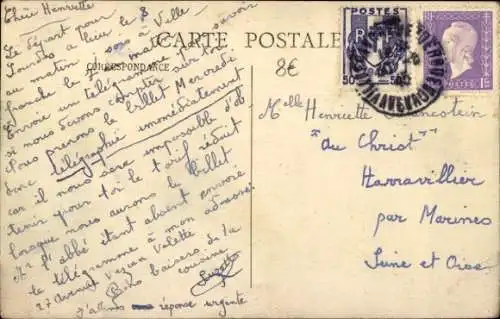 Chère Henriette
Le départ pour
Lourdes a lieu le 8
au matin sois à Ville
franche le 7 matin fais savoir
Envoie un télégramme pour
si nous devons compter sur toi
nous prenons le billet Mercredi
donc télégraphie immédiatement
car il nous sera impossible d'ob
tenir pour toi le tarif réduit
lorsque nous aurons le billet
Mr l'abbé étant absent envoie
le télégramme à mon adresse
27 Avenue Valette
Bons baisers de la
cousine
Suzette
J'attends réponse urgente
CARTE POSTALE
CORRESPONDANCE
8€
POSTES
RF
50 50
Melle Henriette
"du Christ"
Harravillier
par Marines
Seine et Oise